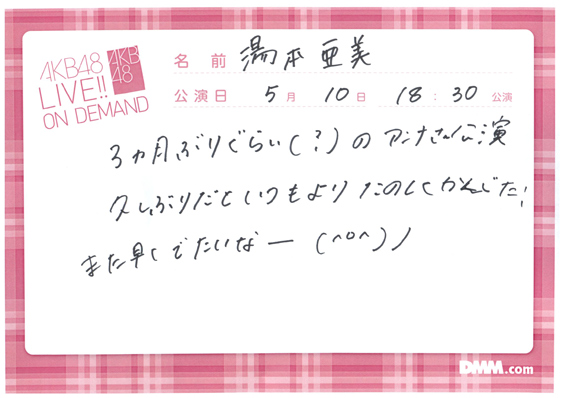 AKB48
LIVE!!
ON DEMAND
AKB
48
名前 湯本亜美
公演日 5月 10日 18:30 公演
3ヵ月ぶりぐらい(?)のアンナさん公演
久しぶりだといつもよりたのしくかんじた!
また早くでたいなー (^o^)ノ
DMM.com